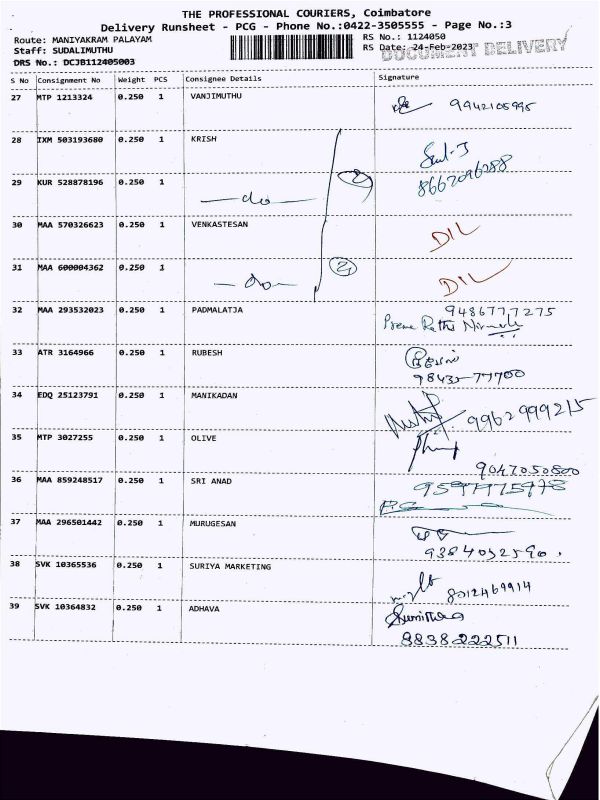 THE PROFESSIONAL COURIERS, Coimbatore
Delivery Runsheet - PCG - Phone No.:0422-3505555 - Page No.:3
Route: MANIYAKRAM PALAYAM RS No.: 1124050
Staff: SUDALIMUTHU RS Date: 24-Feb-2023
DOCUMENT DELIVERY
DRS No.: DCJB112405003
S No Consignment No Weight PCS Consignee Details Signature
27 MTP 1213324 0.250 1 VANJIMUTHU 9942105995
28 IXM 503193680 0.250 1 KRISH
29 KUR 528878196 0.250 1 —do— 2 8667096288
30 MAA 570326623 0.250 1 VENKASTESAN DIL
31 MAA 600004362 0.250 1 —do— 2 DIL
32 MAA 293532023 0.250 1 PADMALATJA 9486777275
33 ATR 3164966 0.250 1 RUBESH
98435-77700
34 EDQ 25123791 0.250 1 MANIKADAN 9962999215
35 MTP 3027255 0.250 1 OLIVE
9047050800
36 MAA 859248517 0.250 1 SRI ANAD 9597775978
37 MAA 296501442 0.250 1 MURUGESAN
9384032590.
38 SVK 10365536 0.250 1 SURIYA MARKETING 8012469914
39 SVK 10364832 0.250 1 ADHAVA Sumithra
9838222511